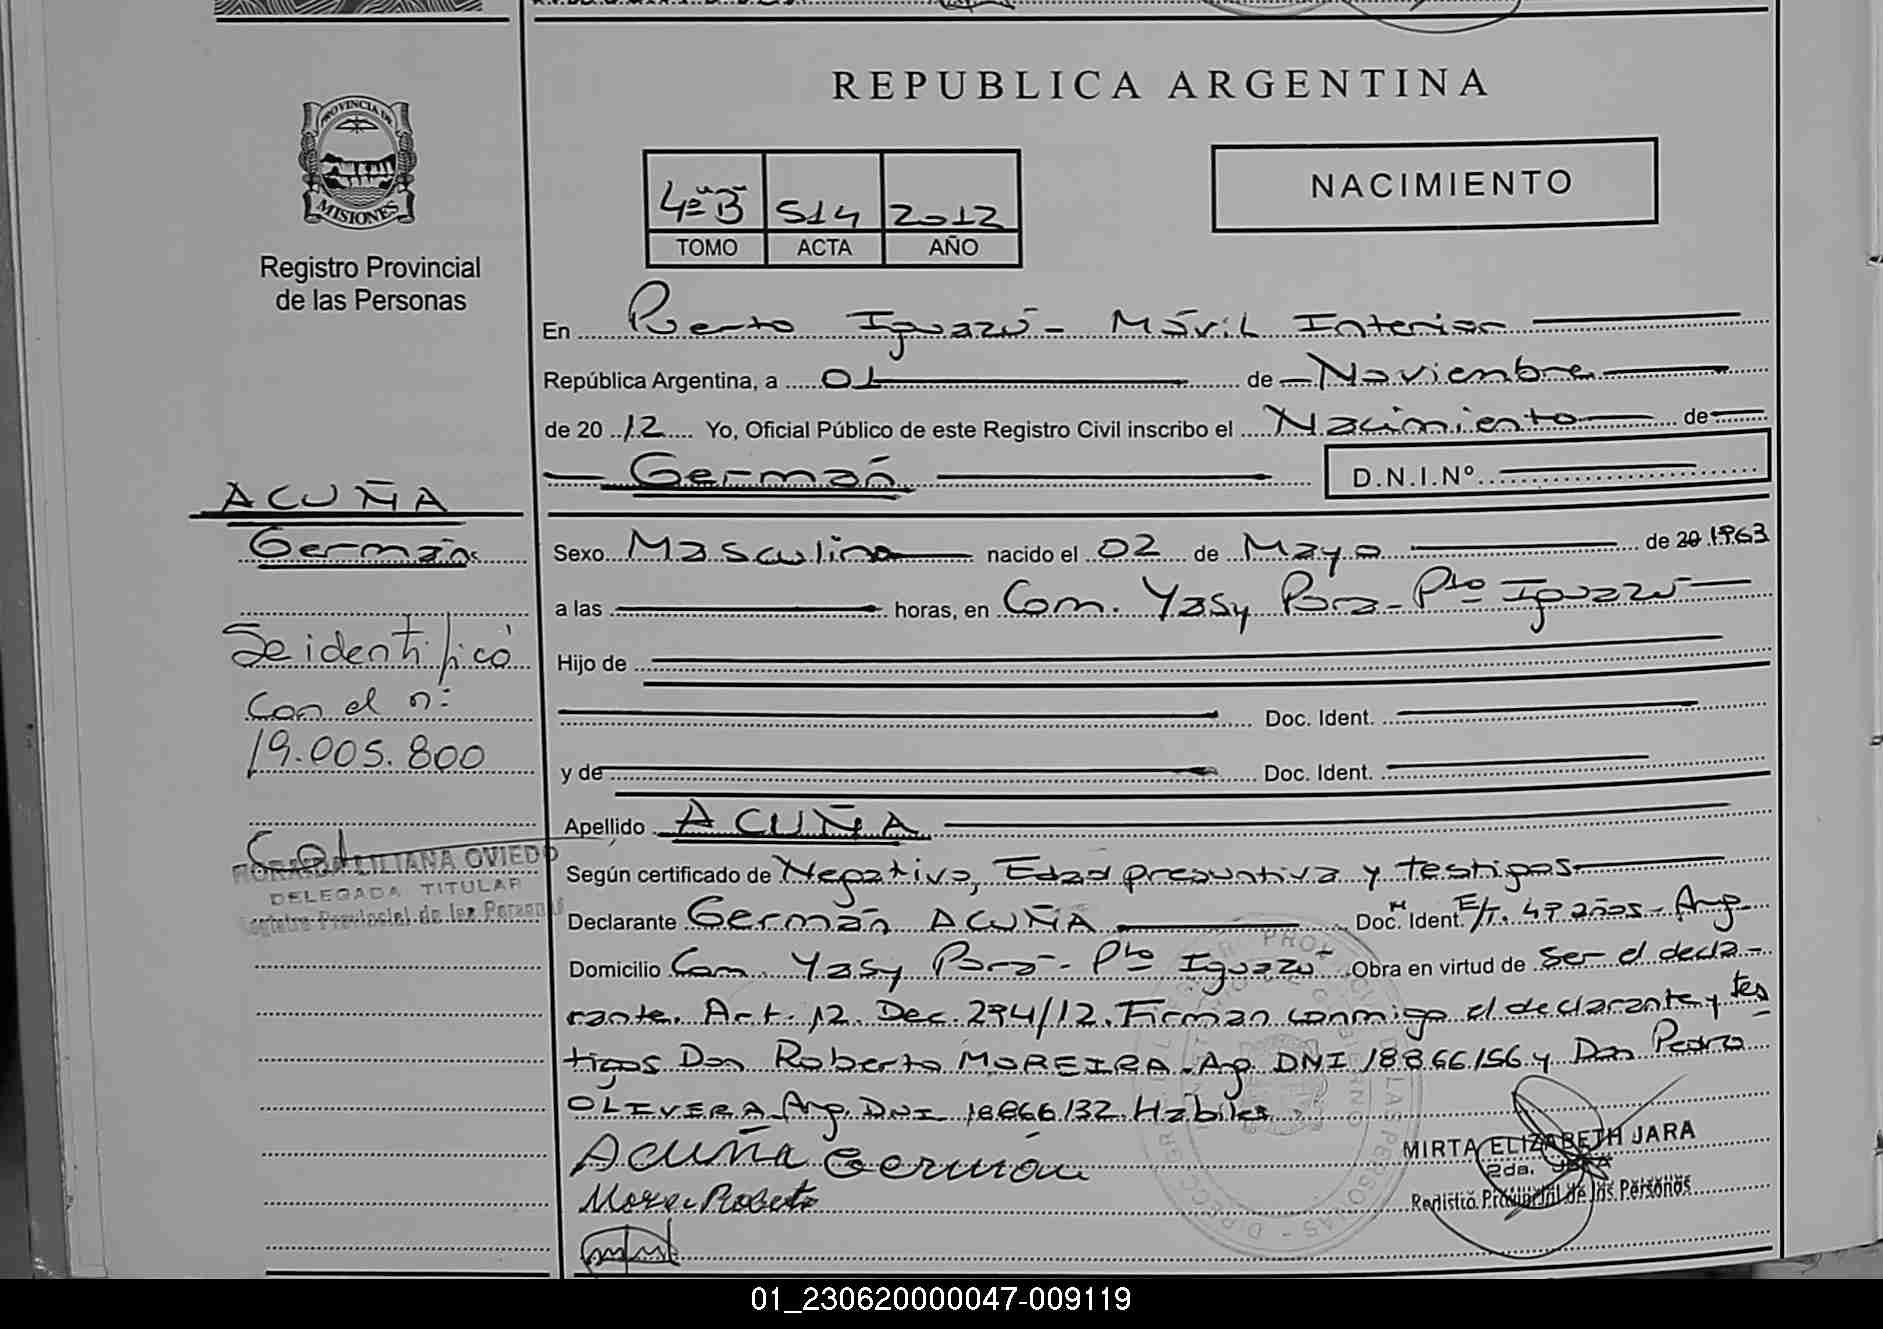 REPUBLICA ARGENTINA
PROVINCIA DE
MISIONES
Registro Provincial
de las Personas
4º "B" 514 2012
TOMO ACTA AÑO
NACIMIENTO
En Puerto Iguazú - Móvil Interior
República Argentina, a 01 de Noviembre
de 2012 Yo, Oficial Público de este Registro Civil inscribo el Nacimiento de
Germán D.N.I.Nº
ACUÑA
Germán
Se identificó
con el nº
19.005.800
HORAIDA LILIANA OVIEDO
DELEGADA TITULAR
Registro Provincial de las Personas
Sexo Masculino nacido el 02 de Mayo de 20 1963
a las horas, en Com. Yasy Pora - Pto Iguazú
Hijo de
Doc. Ident.
y de Doc. Ident.
Apellido ACUÑA
Según certificado de Negativo, Edad presuntiva y testigos
Declarante Germán ACUÑA Doc. Ident. E/T. 49 años - Arg.
Domicilio Com. Yasy Pora - Pto Iguazú Obra en virtud de ser el decla-
rante. Art. 12 Dec. 294/12. Firman conmigo el declarante y tes
tigos Don Roberto MOREIRA - Ag. DNI 18866156 y Don Pedro
OLIVERA Arg. DNI 18866132. Hábiles.
Acuña Germán
Roberto
MIRTA ELIZABETH JARA
2da. JEFA
Registro Provincial de las Personas
01_230620000047-009119